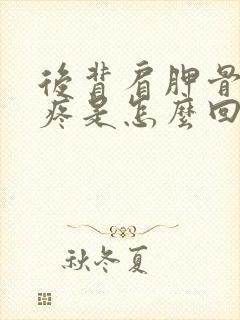 後背肩胛骨
疼是怎麼回
秋冬夏